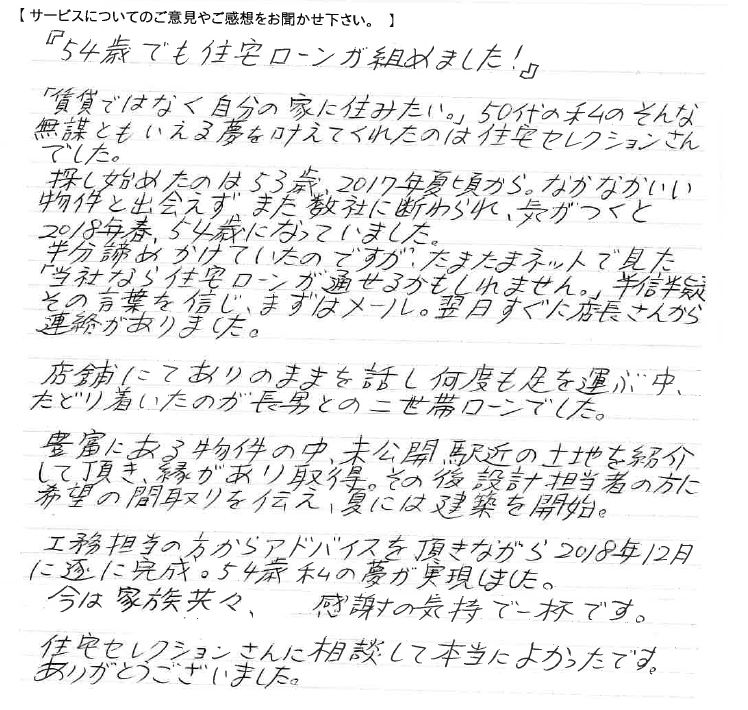 【 サービスについてのご意見やご感想をお聞かせ下さい。 】
『54歳でも住宅ローンが組めました!』
「賃貸ではなく自分の家に住みたい。」50代の私のそんな
無謀ともいえる夢を叶えてくれたのは住宅セレクションさん
でした。
探し始めたのは53歳、2017年夏頃から。なかなかいい
物件と出会えず、また数社に断わられ、気がつくと
2018年春、54歳になっていました。
半分諦めかけていたのですが、たまたまネットで見た
「当社なら住宅ローンが通せるかもしれません。」半信半疑
その言葉を信じ、まずはメール。翌日すぐに店長さんから
連絡がありました。
店舗にてありのままを話し何度も足を運ぶ中、
たどり着いたのが長男との二世帯ローンでした。
豊富にある物件の中、未公開、駅近の土地を紹介
して頂き、縁があり取得。その後設計担当者の方に
希望の間取りを伝え、夏には建築を開始。
工務担当の方からアドバイスを頂きながら2018年12月
に遂に完成。54歳私の夢が実現しました。
今は家族共々、 感謝の気持で一杯です。
住宅セレクションさんに相談して本当によかったです。
ありがとうございました。